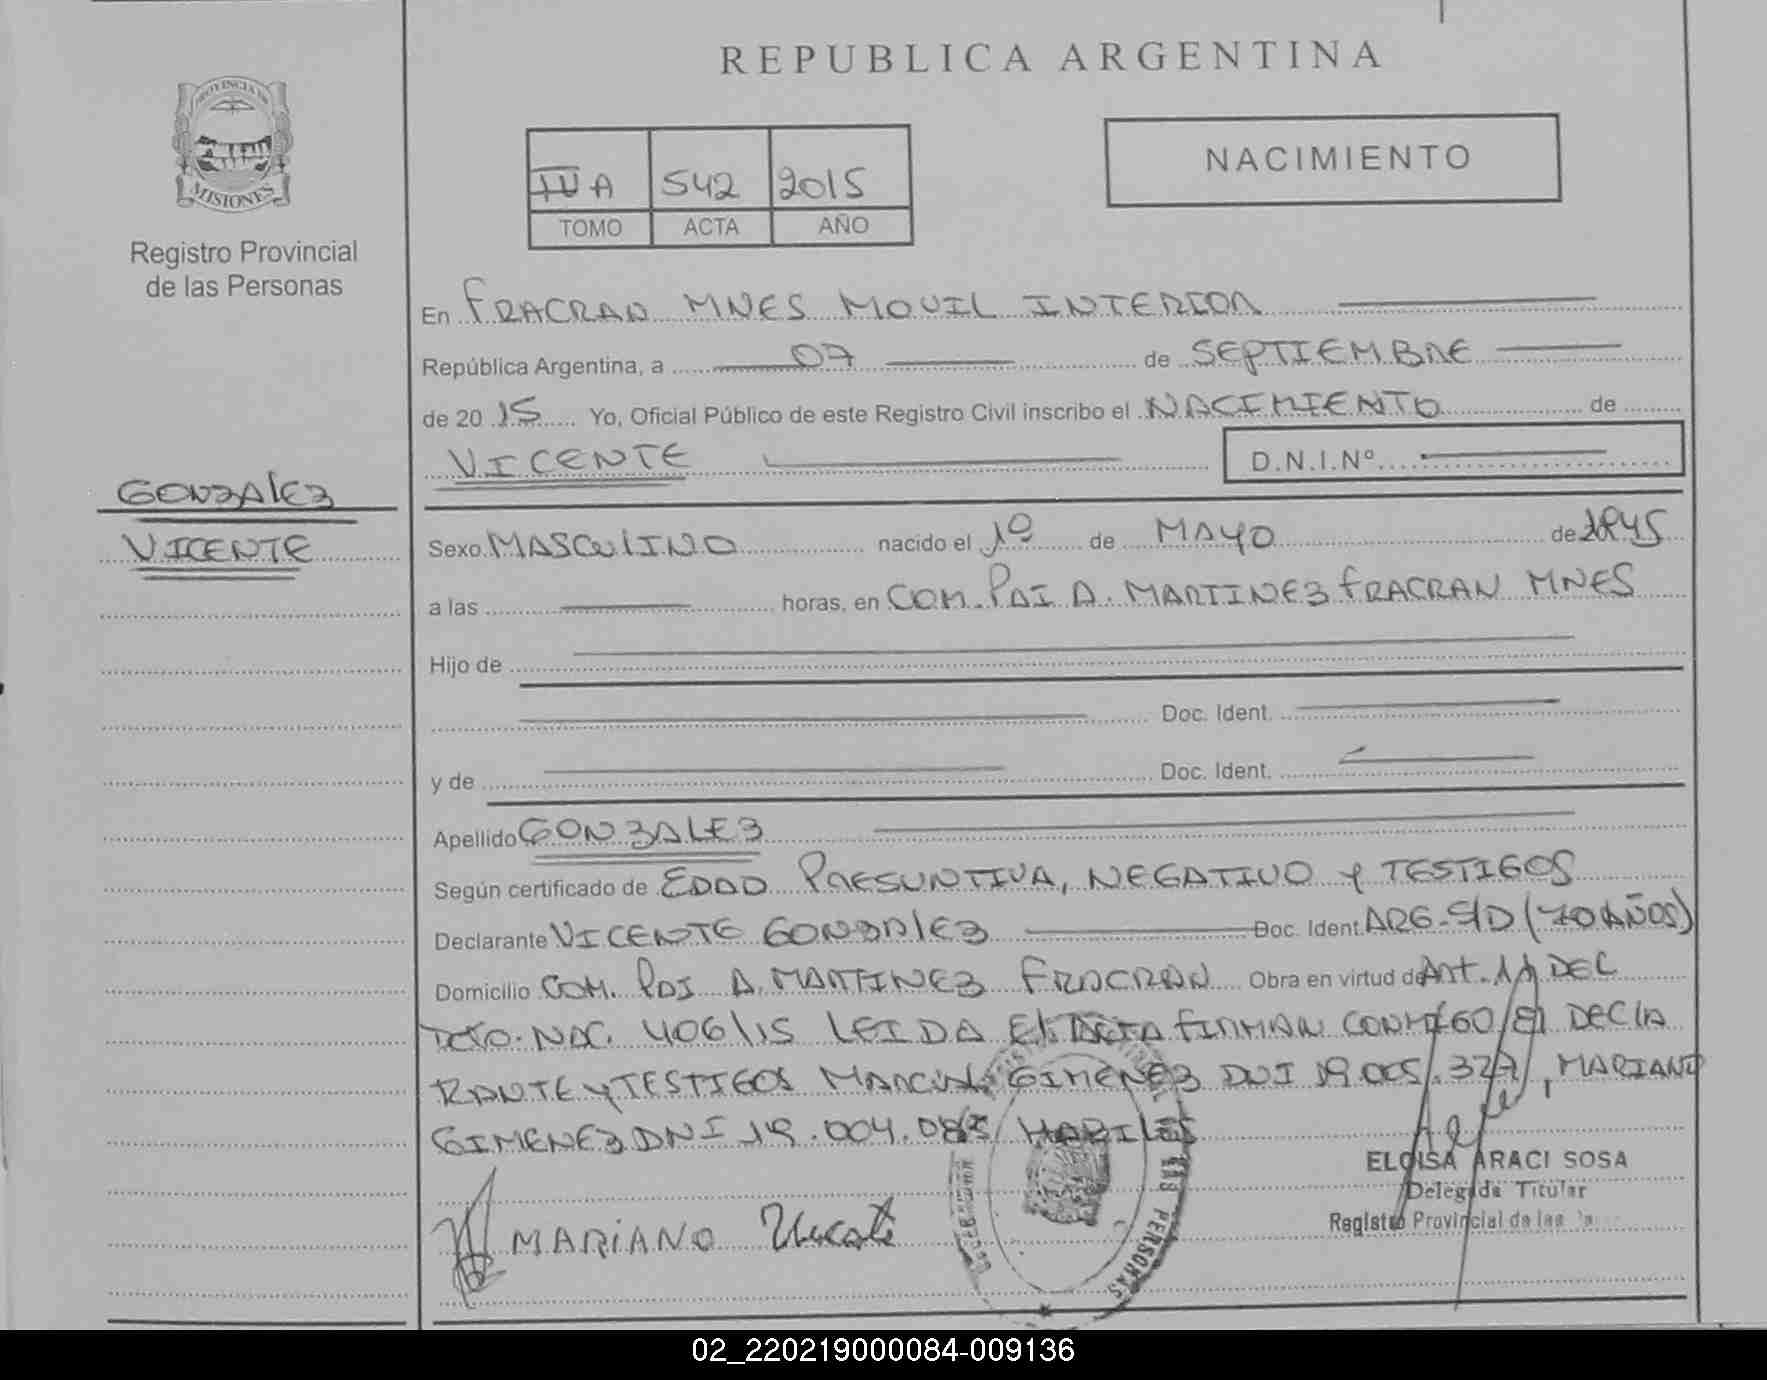 REPUBLICA ARGENTINA
PROVINCIA DE
MISIONES
Registro Provincial
de las Personas
NACIMIENTO
IV A 542 2015
TOMO ACTA AÑO
En FRACRAN MNES MOVIL INTERIOR
República Argentina, a 07 de SEPTIEMBRE
de 20 15 Yo, Oficial Público de este Registro Civil inscribo el NACIMIENTO de
VICENTE D.N.I.Nº
GONZALEZ
VICENTE
Sexo MASCULINO nacido el 1º de MAYO de 1945
a las horas, en COM. PAI A. MARTINEZ FRACRAN MNES
Hijo de
Doc. Ident.
y de Doc. Ident.
Apellido GONZALEZ
Según certificado de EDAD PRESUNTIVA, NEGATIVO Y TESTIGOS
Declarante VICENTE GONZALEZ Doc. Ident. ARG-S/D (70 AÑOS)
Domicilio COM. PAI A. MARTINEZ FRACRAN Obra en virtud de Art. 11 DEC
DCTO. NAC. 406/15 LEIDA El ACTA FIRMAN CONMIGO El DECLA
RANTE y TESTIGOS MARCIAL GIMENEZ DNI 19.005.327, MARIANO
GIMENEZ DNI 19.004. HABILES
ELOISA ARACI SOSA
Delegada Titular
Registro Provincial de las
MARIANO
PERSONAS
02_220219000084-009136